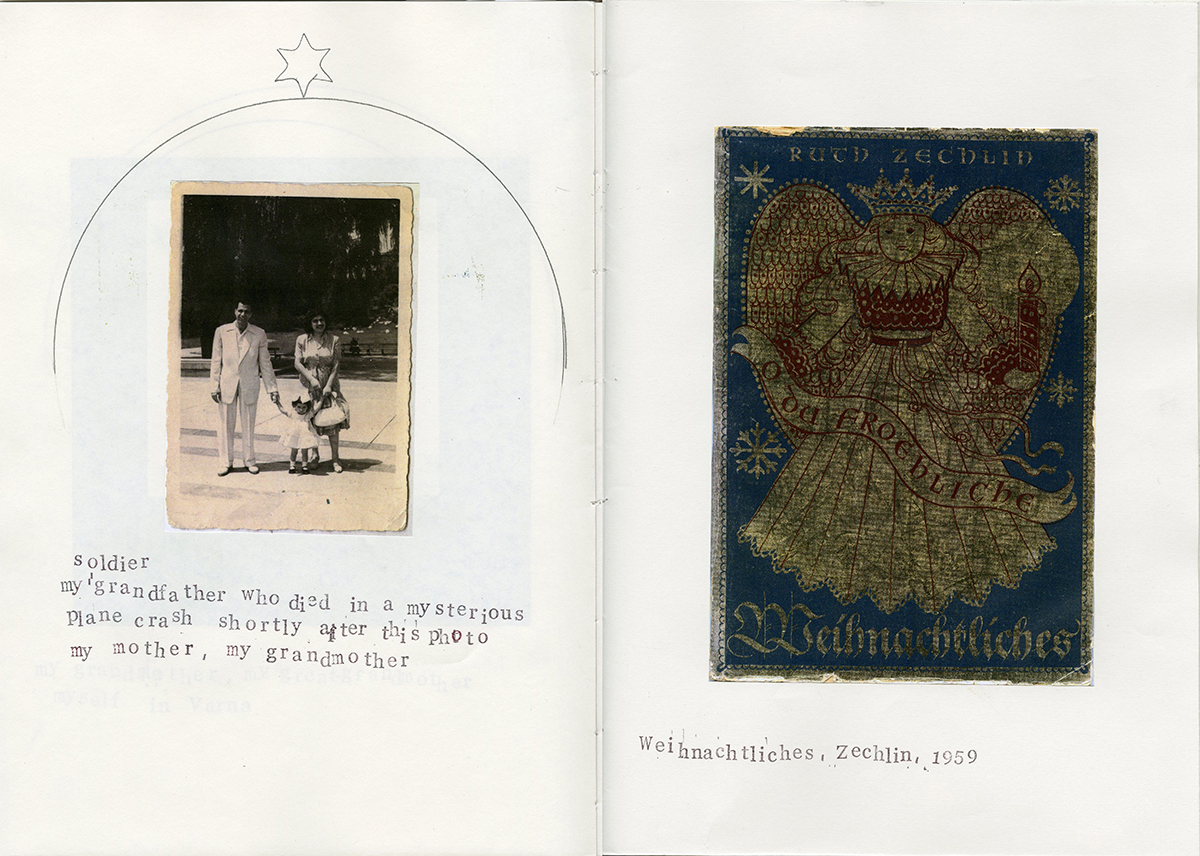 soldier
my grandfather who died in a mysterious
plane crash shortly after this photo
my mother, my grandmother
my grandmother, my greatgrandmother
myself in Varna
RUTH ZECHLIN
O du FRoehLiche
Weihnachtliches
Weihnachtliches, Zechlin, 1959